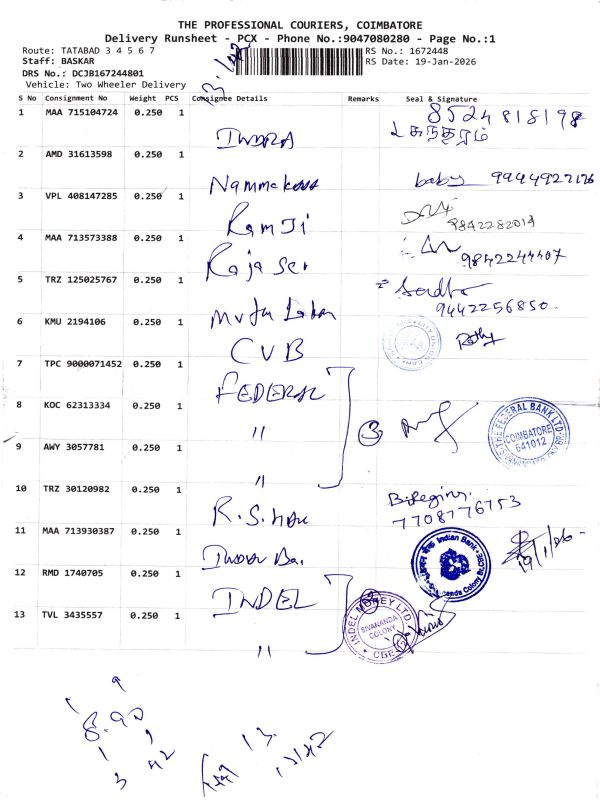 THE PROFESSIONAL COURIERS, COIMBATORE
Delivery Runsheet - PCX - Phone No.:9047080280 - Page No.:1
Route: TATABAD 3 4 5 6 7
RS No.: 1672448
Staff: BASKAR
RS Date: 19-Jan-2026
DRS No.: DCJB167244801
Vehicle: Two Wheeler Delivery
S No Consignment No Weight PCS Consignee Details Remarks Seal & Signature
1 MAA 715104724 0.250 1
8524818198
INDRA
2 AMD 31613598 0.250 1
baby 9944927126
3 VPL 408147285 0.250 1
RamJi
9842282019
4 MAA 713573388 0.250 1
9842244407
5 TRZ 125025767 0.250 1
9442256850
6 KMU 2194106 0.250 1
CUB
7 TPC 9000071452 0.250 1
FEDERAL
8 KOC 62313334 0.250 1
"
3
THE FEDERAL BANK LTD
COIMBATORE
641012
9 AWY 3057781 0.250 1
"
10 TRZ 30120982 0.250 1
7708776753
11 MAA 713930387 0.250 1
Indian Bank
19/1/26
12 RMD 1740705 0.250 1
INDEL
INDEL MONEY LTD.
SIVANANDA
COLONY
CBE
13 TVL 3435557 0.250 1
"